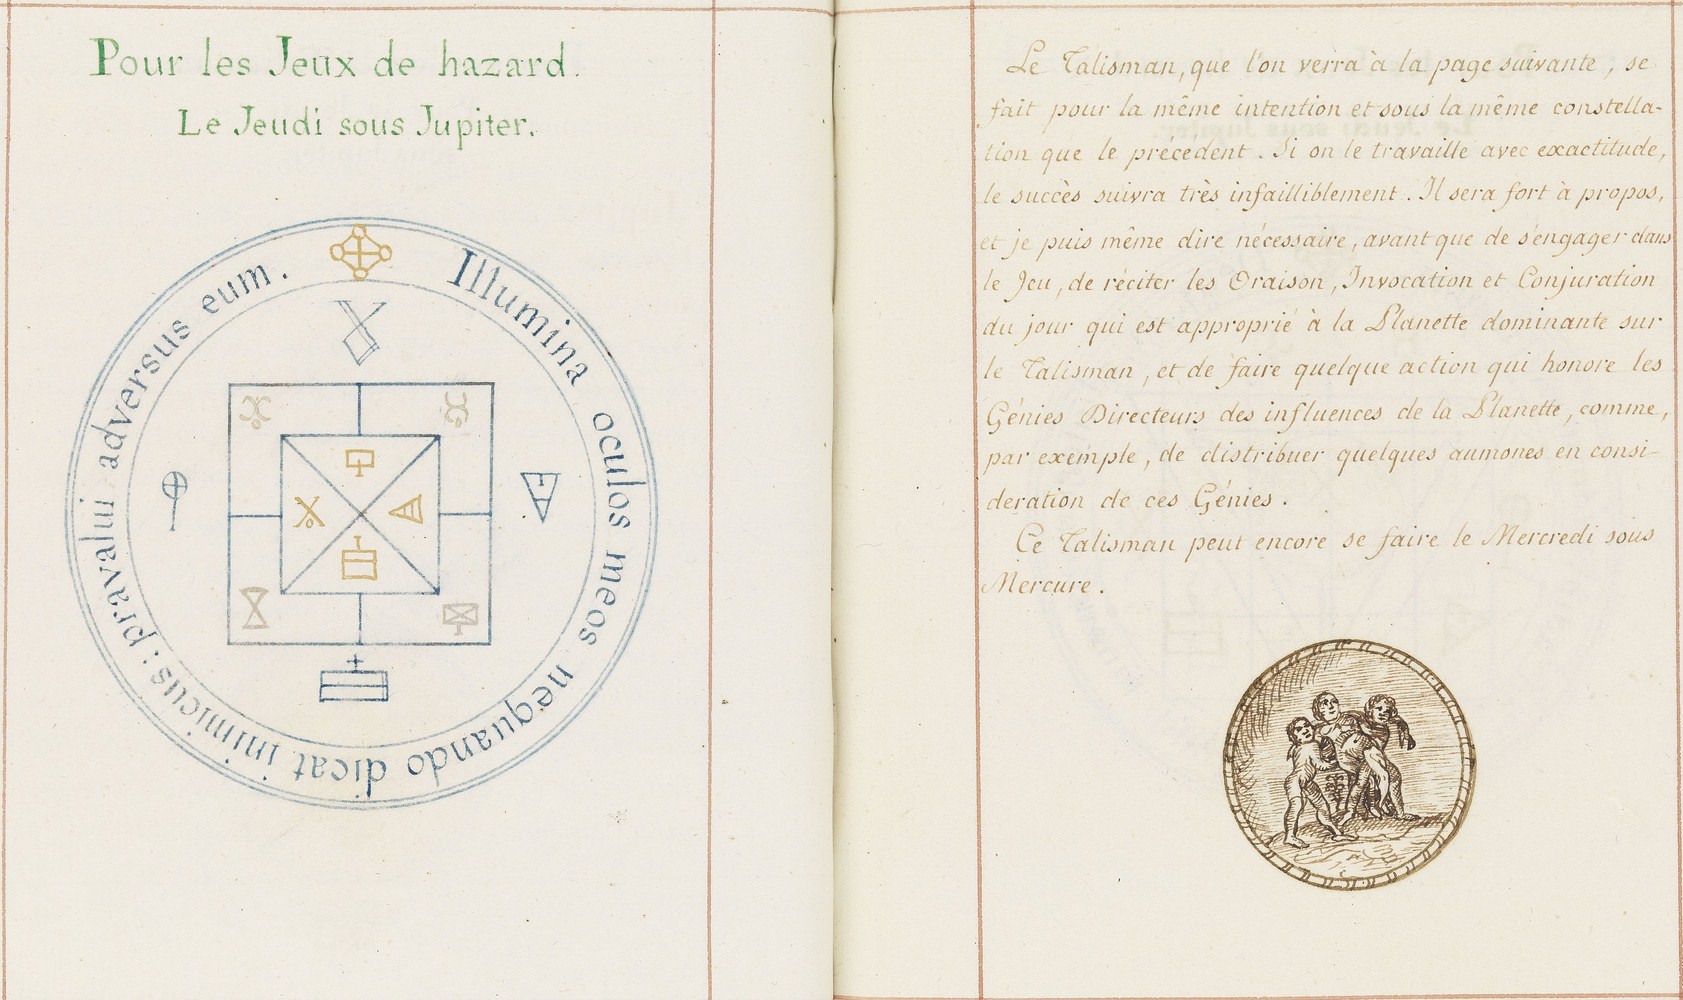 Pour les Jeux de hazard.
Le Jeudi sous Jupiter.
Illumina oculos meos nequando dicat inimicus: pravalui adversus eum.
Le Talisman, que l'on verra à la page suivante, se
fait pour la même intention et sous la même constella-
tion que le précedent. Si on le travaille avec exactitude,
le succès suivra très infailliblement. Il sera fort à propos,
et je puis même dire nécessaire, avant que de s'engager dans
le Jeu, de réciter les Oraison, Invocation et Conjuration
du jour qui est approprié à la Planette dominante sur
le Talisman, et de faire quelque action qui honore les
Génies Directeurs des influences de la Planette, comme,
par exemple, de distribuer quelques aumones en consi-
deration de ces Génies.
Ce Talisman peut encore se faire le Mercredi sous
Mercure.